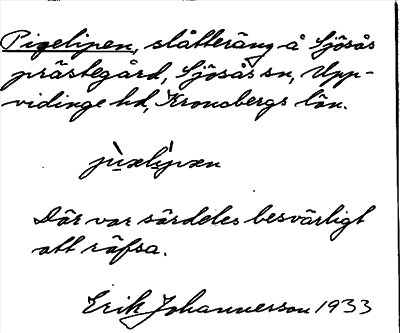 Pigelipen, slåtteräng å Sjösås
prästegård, Sjösås sn, Upp-
vidinge hd, Kronobergs län.
Där var särdeles besvärligt
att räfsa.
Erik Johannesson 1933